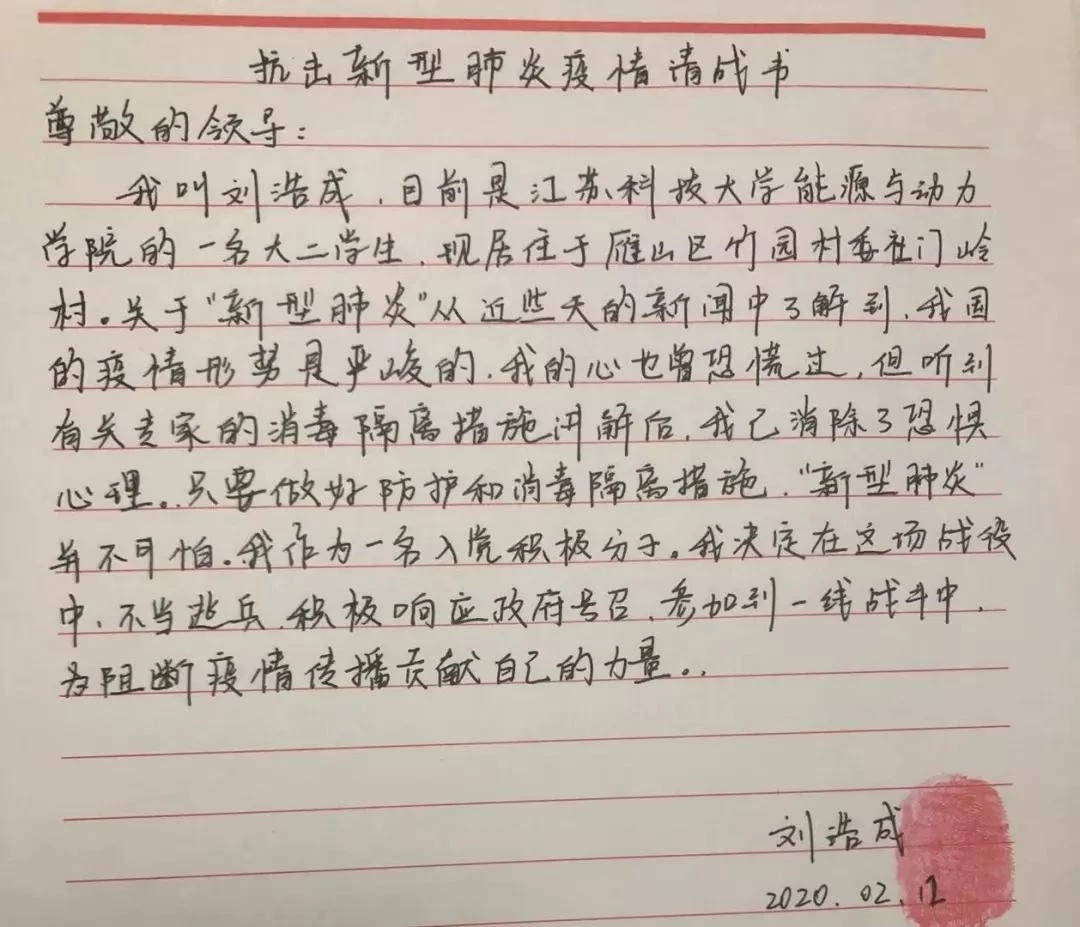 抗击新型肺炎疫情请战书
尊敬的领导:
我叫刘浩成,目前是江苏科技大学能源与动力
学院的一名大二学生,现居住于雁山区竹园村委社门岭
村。关于“新型肺炎”从近些天的新闻中了解到,我国
的疫情形势是严峻的,我的心也曾恐慌过,但听到
有关专家的消毒隔离措施讲解后,我已消除了恐惧
心理。只要做好防护和消毒隔离措施,“新型肺炎”
并不可怕。我作为一名入党积极分子。我决定在这场战役
中,不当逃兵,积极响应政府号召,参加到一线战斗中,
为阻断疫情传播贡献自己的力量..
刘浩成
2020.02.12